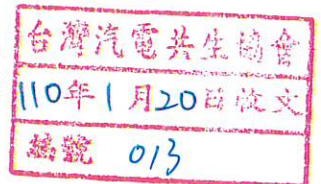 台灣汽電共生協會
110年1月20日收文
編號 013